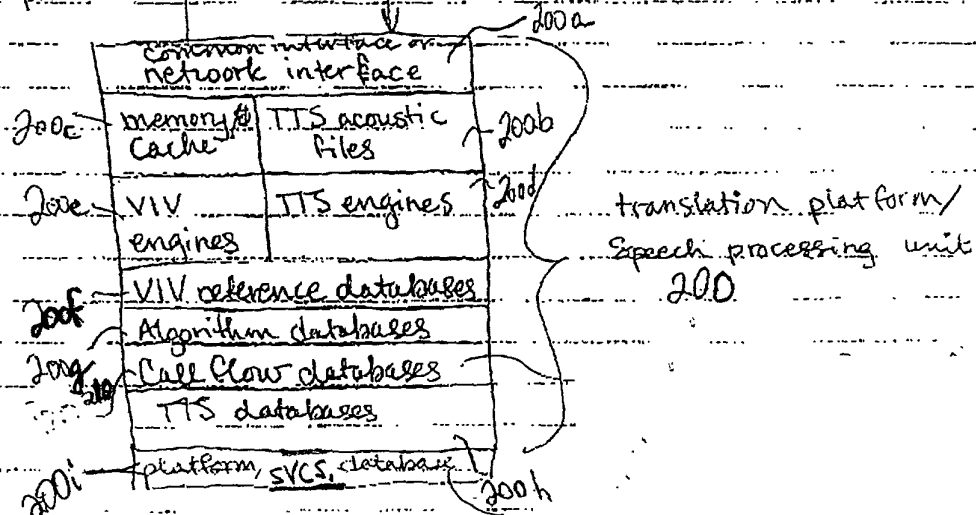 200a
common interface or
network interface
200c
memory &
Cache
TTS acoustic
files
200b
200e
VIV
engines
TTS engines
200d
translation platform/
Speech processing unit
200
200f
VIV reference databases
200g
Algorithm databases
Call flow databases
TTS databases
200i
platform, SVCS, database
200h